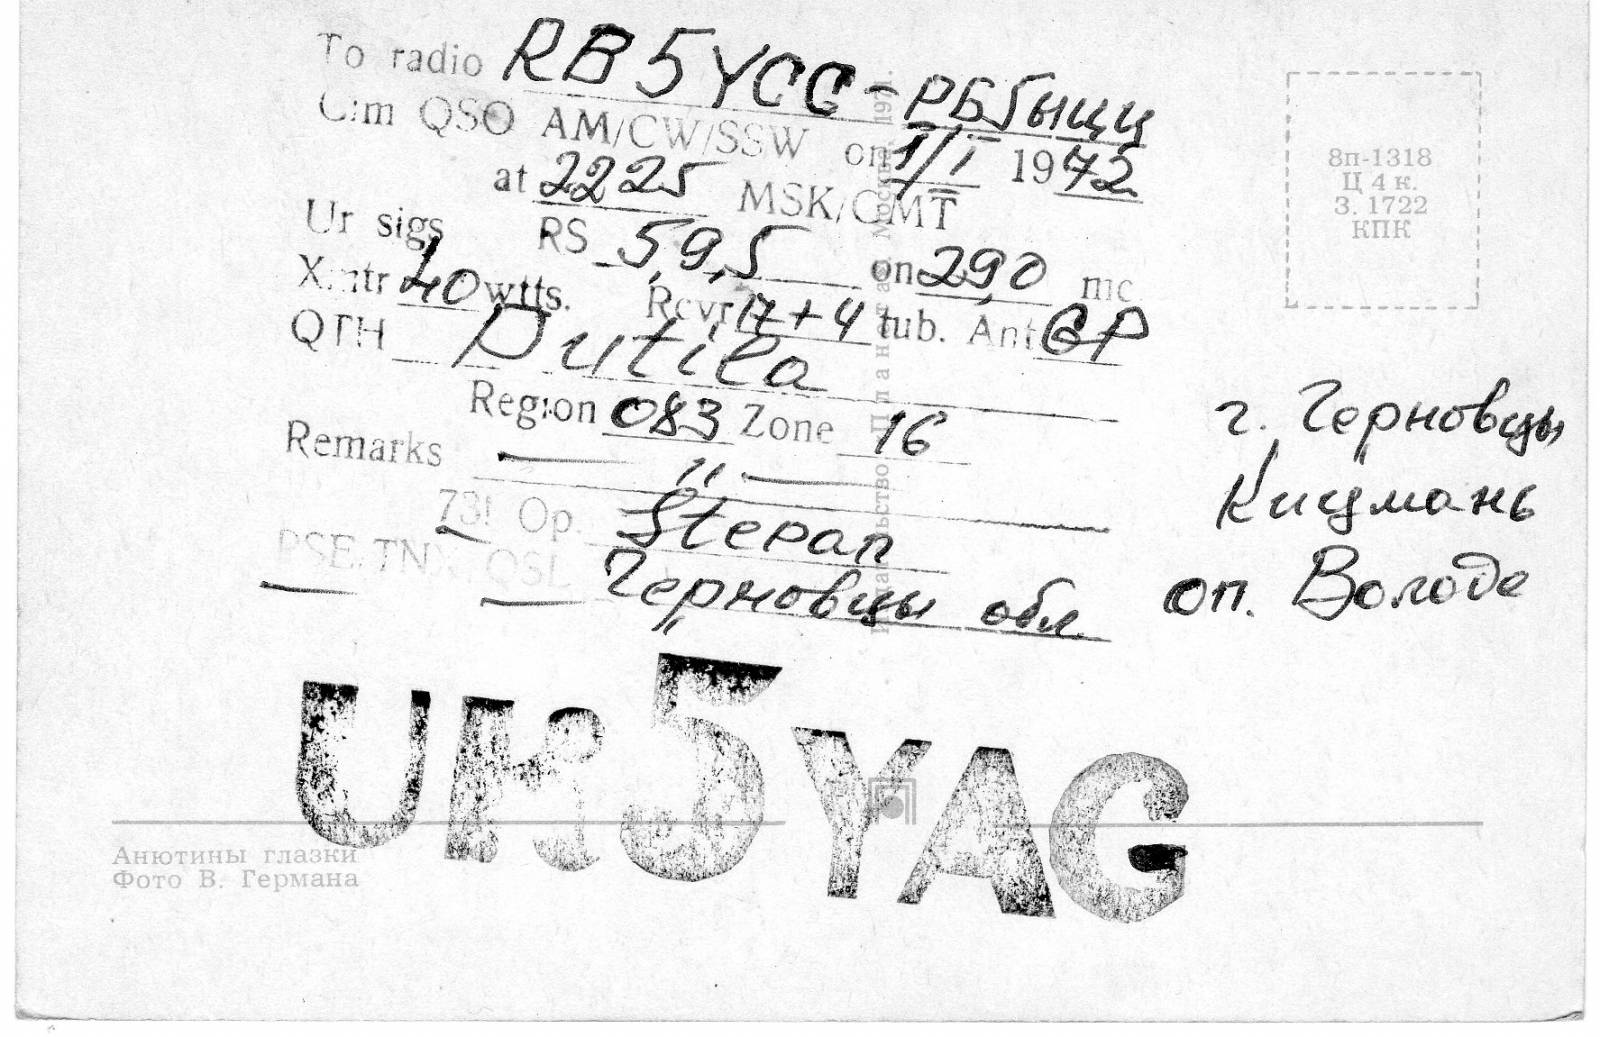 To radio RB5YCC - РБ5ЫЦЦ
C:m QSO AM/CW/SSW on 1/I 1972
at 2225 MSK/GMT
Ur sigs RS 5,9,5 on 29,0 mc
Xmtr 40 wtts. Rcvr 17+4 tub. Ant GP
QTH Putila
Region 083 Zone 16
Remarks — " —
73! Op. Stepan
PSE TNX QSL
Черновцы обл.
г. Черновцы
Кицмань
оп. Володе
UK5YAG
8п-1318
Ц 4 к.
З. 1722
КПК
Анютины глазки
Фото В. Германа